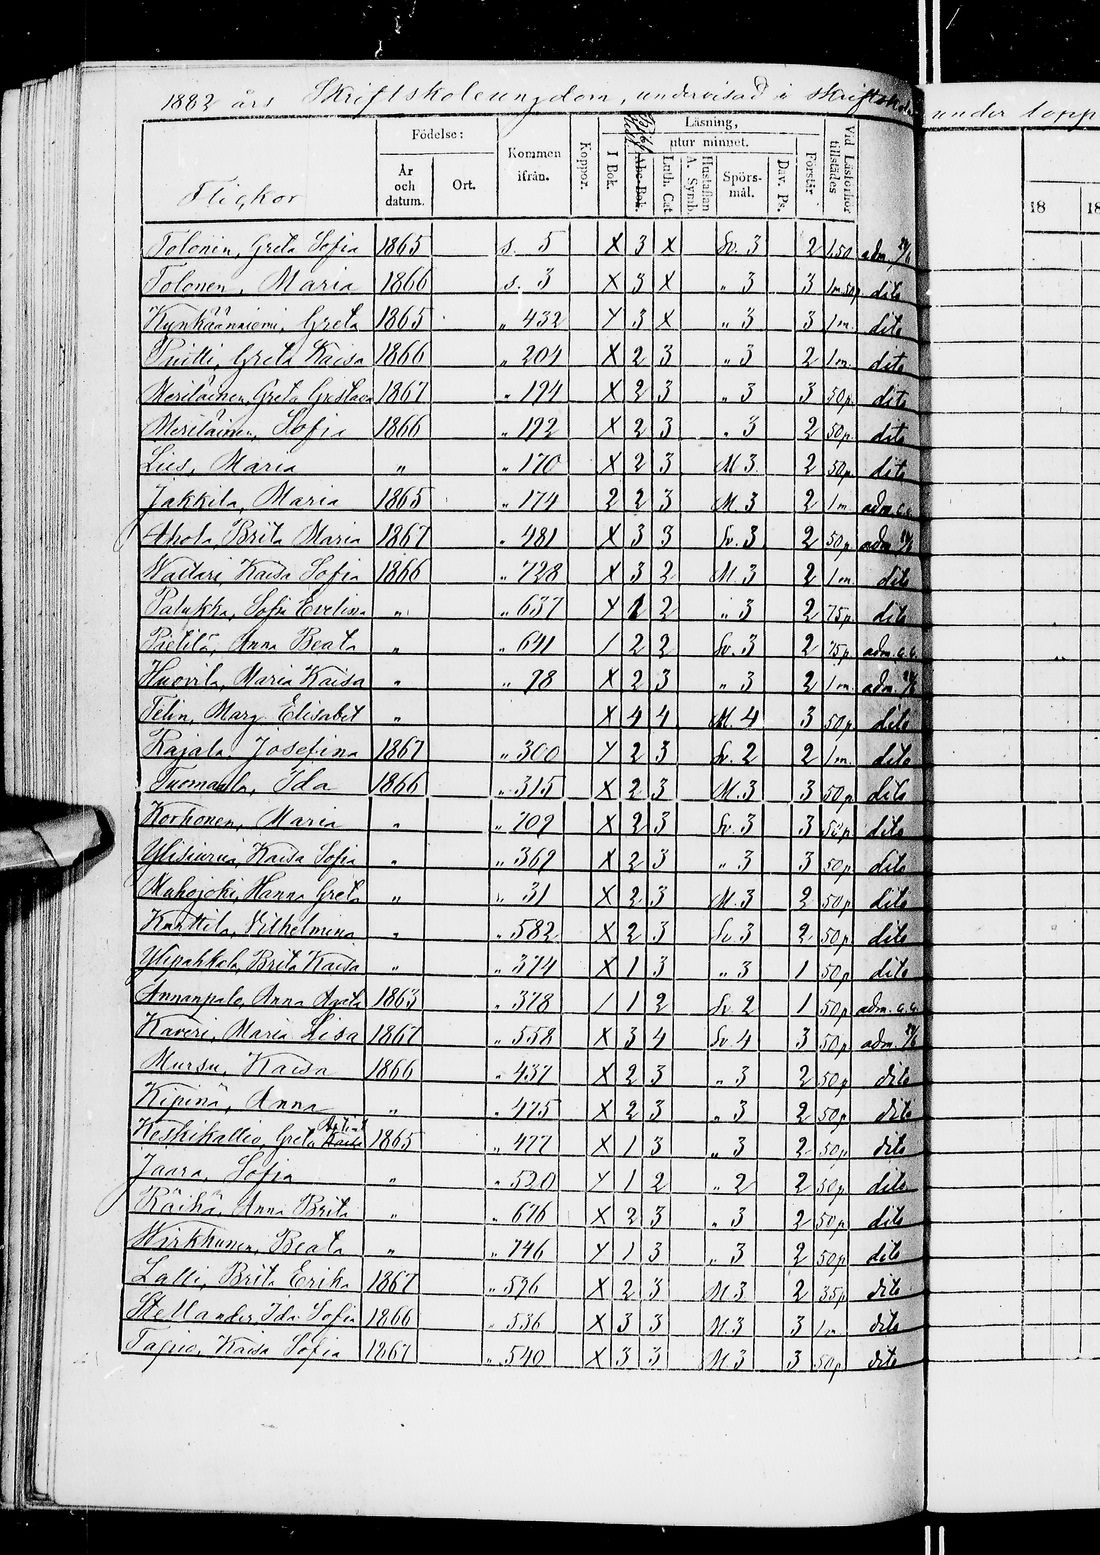 1882 års Skriftskoleungdom, undervisad i Skriftskolan under lopp
Födelse: Läsning,
Flickor År och datum. Ort. Kommen ifrån. Koppor. I Bok. Abc-Bok. utur minnet. Luth. Cat. Hustaflan A. Symb. Spörs-mål. Dav. Ps. Förstår Vid Läsförhör tillstädes 18 18
Tolonen, Greta Sofia 1865 s. 5 X 3 X Sv. 3 2 1,50 adm.
Tolonen, Maria 1866 s. 3 X 3 X „ 3 3 1m.50p dito
Kynkäänniemi, Greta 1865 „ 432 Y 3 X „ 3 3 1m. dito
Priitti, Greta Kaisa 1866 „ 204 X 2 3 „ 3 2 1m. dito
Meriläinen, Greta Gustava 1867 „ 194 X 2 3 „ 3 3 50p. dito
Meriläinen, Sofia 1866 „ 192 X 2 3 „ 3 2 50p. dito
Lies, Maria „ „ 170 X 2 3 M 3 2 50p. dito
Jakkila, Maria 1865 „ 174 2 2 3 M. 3 2 1m adm. c.c.
Ahola, Brita Maria 1867 „ 481 X 3 3 Sv. 3 2 50p. adm.
Waltari Kaisa Sofia 1866 „ 728 X 3 2 M. 3 2 1m. dito
Palukka, Sofia Evelina „ „ 637 Y 1 2 „ 3 2 75p. dito
Pietilä, Anna Beata „ „ 641 / 2 2 Sv. 3 2 75p adm. c.c.
Huovila, Maria Kaisa „ „ 78 X 2 3 „ 3 2 1m. adm.
Telin, Marg. Elisabet „ X 4 4 M. 4 3 50p. dito
Rajala, Josefina 1867 „ 300 Y 2 3 Sv. 2 2 1m. dito
Tuomaala, Ida 1866 „ 315 X 2 3 M. 3 3 50p dito
Korhonen, Maria „ „ 709 X 2 3 Sv. 3 3 50p dito
Ylisiurua, Kaisa Sofia „ „ 369 X 2 3 „ 3 3 50p. dito
Muhojoki, Hanna Greta „ „ 31 X 2 3 M. 3 2 50p. dito
Kurttila, Vilhelmina „ „ 582 X 2 3 Sv. 3 2 50p. dito
Ylipahkala, Brita Kaisa „ „ 374 X 1 3 „ 3 1 50p. dito
Annanpalo, Anna Agata 1863 „ 378 / 1 2 Sv. 2 1 50p adm. c.c.
Kaveri, Maria Lisa 1867 „ 558 X 3 4 Sv. 4 3 50p adm.
Mursu, Kaisa 1866 „ 437 X 2 3 „ 3 2 50p. dito
Kipinä, Anna „ „ 475 X 2 3 „ 3 2 50p. dito
Koskikallio, Greta Kaisa 1865 „ 477 X 1 3 „ 3 2 50p. dito
Jaara, Sofia „ „ 520 Y 1 2 „ 2 2 50p. dito
Räihä, Anna Brita „ „ 676 X 2 3 „ 3 2 50p. dito
Wirkkunen, Beata „ „ 746 Y 1 3 „ 3 2 50p dito
Lalli, Brita Erika 1867 „ 596 X 2 3 M 3 2 35p dito
Stellander, Ida Sofia 1866 „ 536 X 3 3 M. 3 3 1m dito
Tapio, Kaisa Sofia 1867 „ 540 X 3 3 M 3 3 50p dito